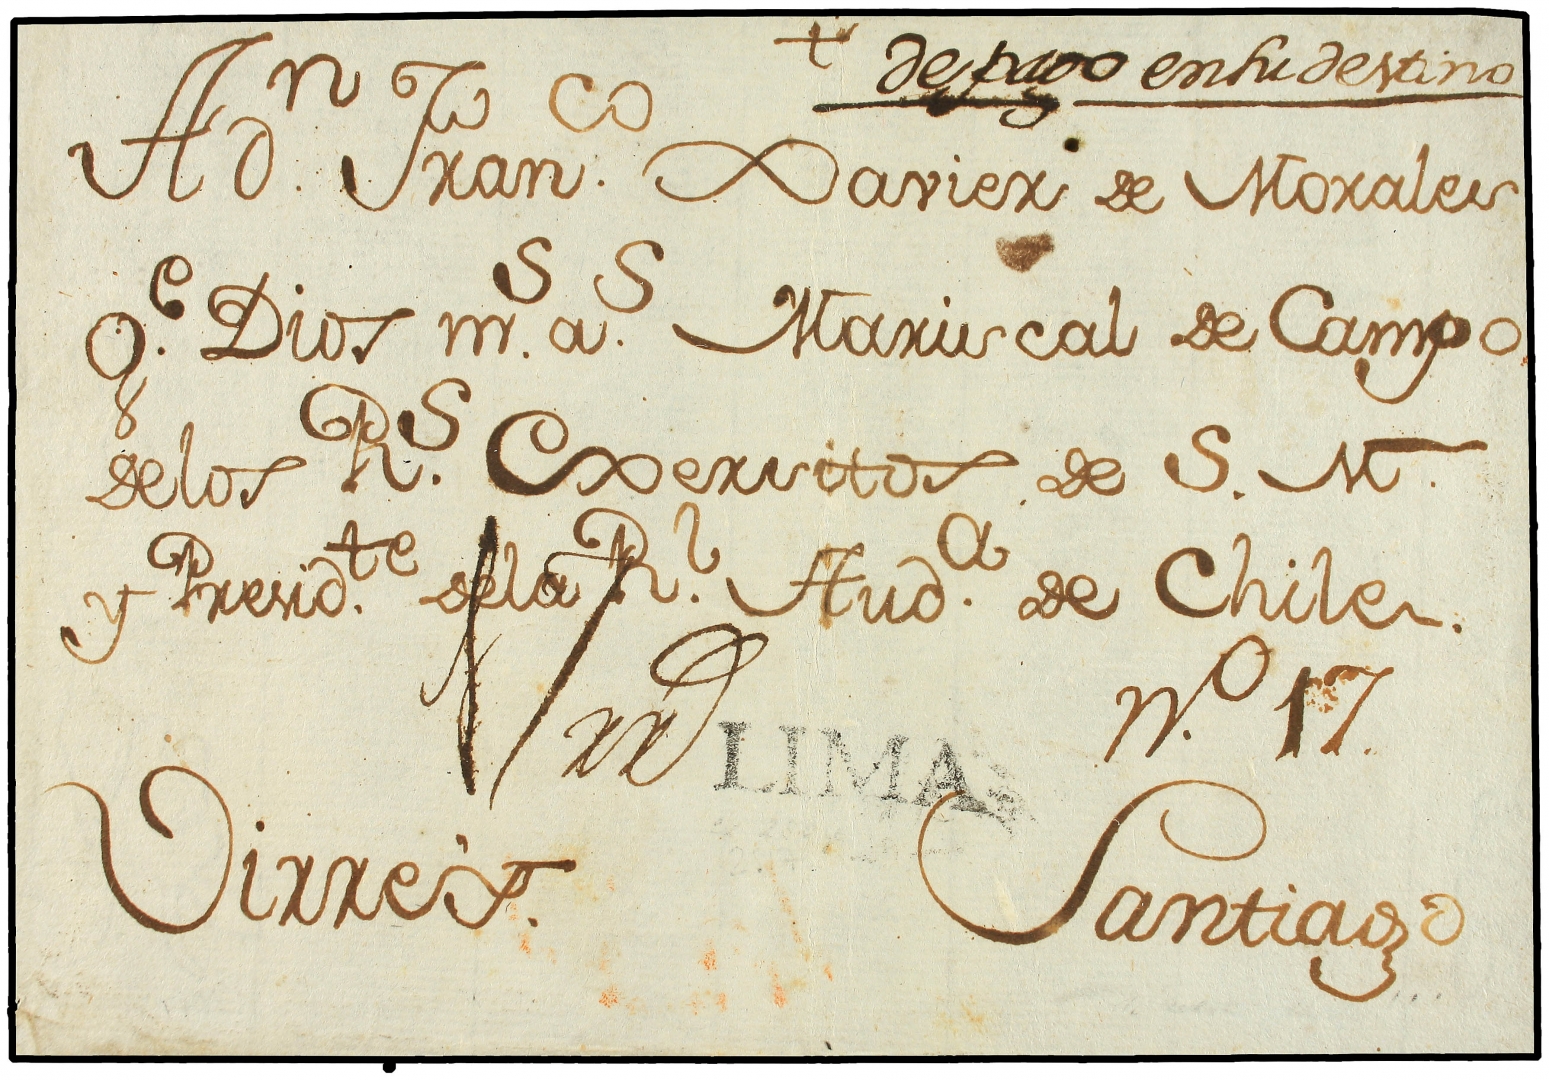 † de pago en su destino
A Dn. Franco. Xavier de Morales
Qe. Dios ms. as. Mariscal de Campo
de los Rs. Exercitos de S. M.
y Presidte. de la Rl. Auda. de Chile.
No. 17.
LIMA
Virrèy. Santiago